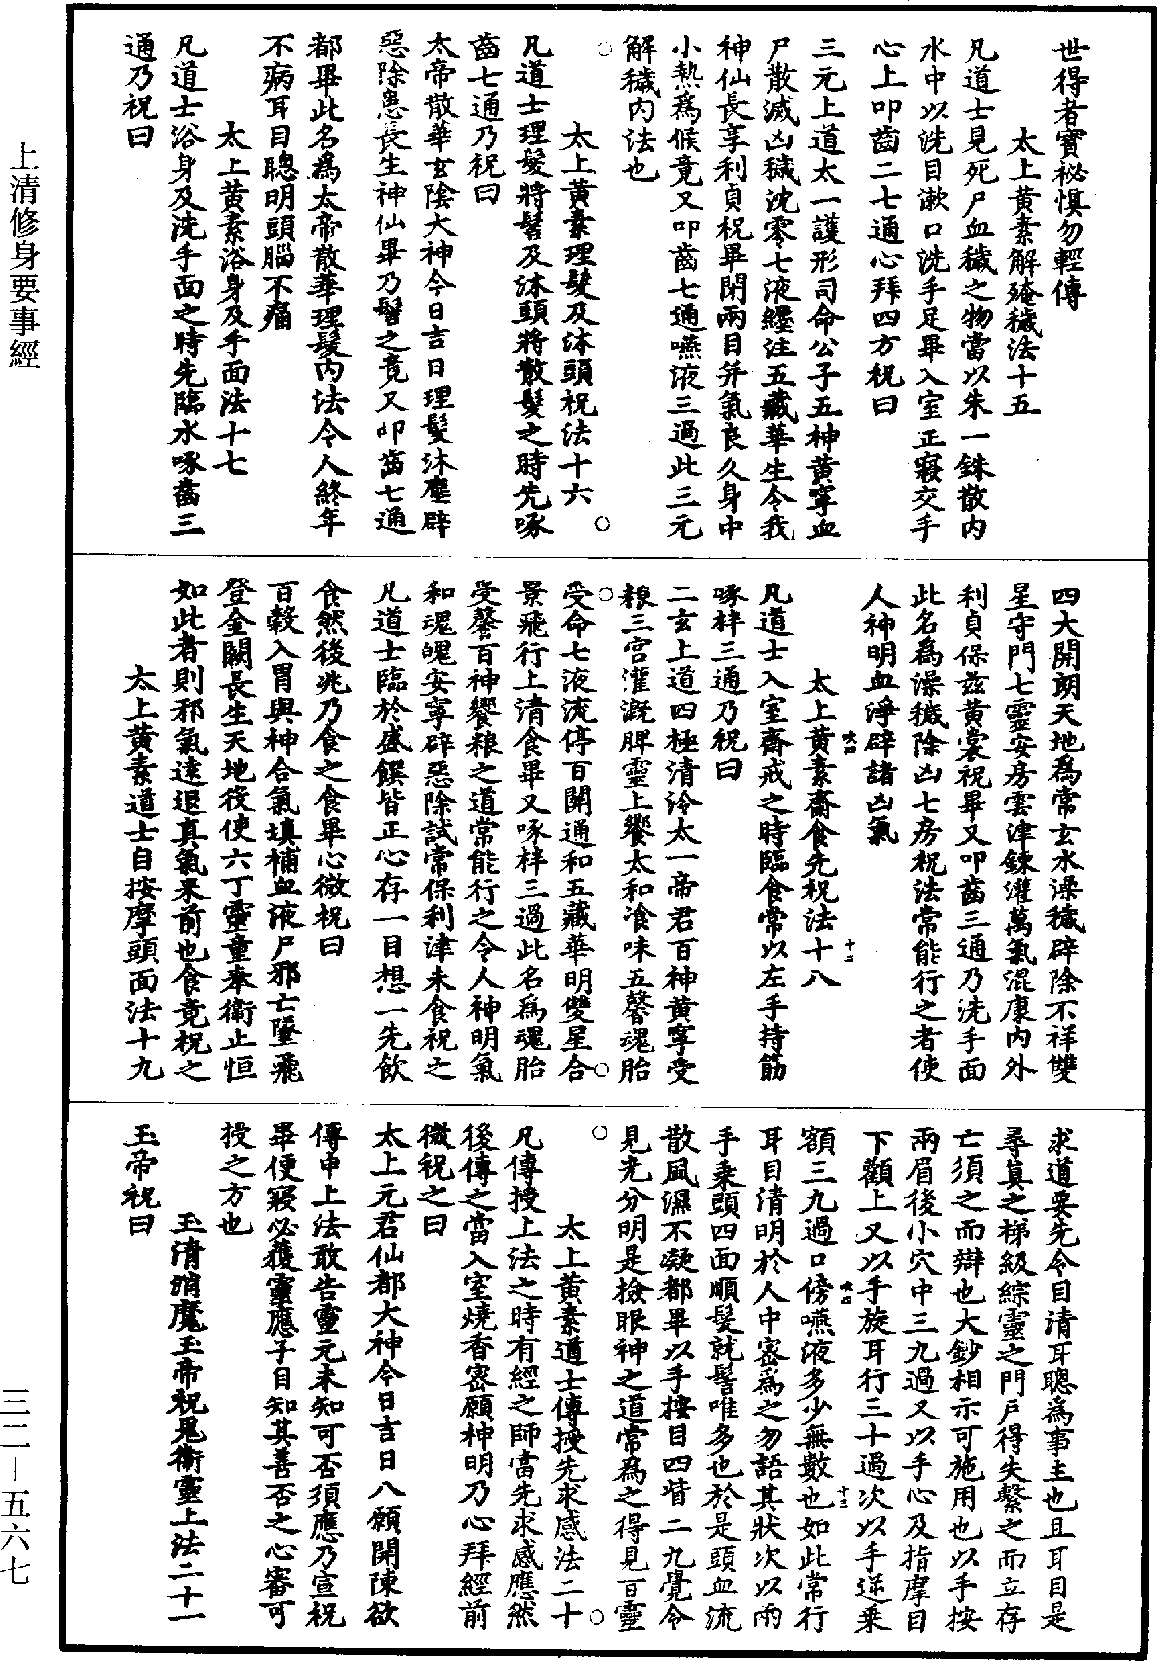 世得者寶祕慎勿輕傳
太上黃素解殗穢法十五
凡道士見死尸血穢之物當以朱一銖散內
水中以洗目漱口洗手足畢入室正寢交手
心上叩齒二七通心拜四方祝曰
三元上道太一護形司命公子五神黃寧血
尸散滅凶穢沈零七液纏注五藏華生令我
神仙長享利貞祝畢閉兩目并氣良久身中
小熱為候竟又叩齒七通嚥液三過此三元
解穢內法也
太上黃素理髮及沐頭祝法十六
凡道士理髮將髻及沐頭將散髮之時先啄
齒七通乃祝曰
太帝散華玄陰大神今日吉日理髮沐塵辟
惡除患長生神仙畢乃髻之竟又叩齒七通
都畢此名為太帝散華理髮內法令人終年
不病耳目聰明頭腦不痛
太上黃素浴身及手面法十七
凡道士浴身及洗手面之時先臨水啄齒三
通乃祝曰
四大開朗天地為常玄水澡穢辟除不祥雙
星守門七靈安房雲津鍊灌萬氣混康內外
利貞保茲黃裳祝畢又叩齒三通乃洗手面
此名為澡穢除凶七房祝法常能行之者使
人神明血淨辟諸凶氣
太上黃素齋食先祝法十八
凡道士入室齋戒之時臨食常以左手持筯
啄柈三通乃祝曰
二玄上道四極清泠太一帝君百神黃寧受
糧三宮灌溉脾靈上饗太和飡味五馨魂胎
受命七液流停百關通和五藏華明雙星合
景飛行上清食畢又啄柈三過此名為魂胎
受馨百神饗糧之道常能行之令人神明氣
和魂魄安寧辟惡除試常保利津未食祝之
凡道士臨於盛饌皆正心存一目想一先飲
食然後兆乃食之食畢心微祝曰
百穀入胃與神合氣填補血液尸邪亡墜飛
登金闕長生天地役使六丁靈童奉衛止恒
如此者則邪氣遠迸真氣來前也食竟祝之
太上黃素道士自按摩頭面法十九
求道要先令目清耳聰為事主也且耳目是
尋真之梯級綜靈之門戶得失繫之而立存
亡須之而辯也大鈔相示可施用也以手按
兩眉後小穴中三九過又以手心及指摩目
下顴上又以手旋耳行三十過次以手逆乘
額三九過口傍嚥液多少無數也如此常行
耳目清明於人中密為之勿語其狀次以兩
手乘頭四面順髮就髻唯多也於是頭血流
散風濕不凝都畢以手按目四眥二九覺令
見光分明是檢眼神之道常為之得見百靈
太上黃素道士傳授先求感法二十
凡傳授上法之時有經之師當先求感應然
後傳之當入室燒香密願神明乃心拜經前
微祝之曰
太上元君仙都大神今日吉日八願開陳欲
傳申上法敢告靈元未知可否須應乃宣祝
畢便寢必獲靈應子自知其善否之心審可
授之方也
玉清消魔玉帝祝鬼衛靈上法二十一
玉帝祝曰
上清修身要事經
三二－五六七